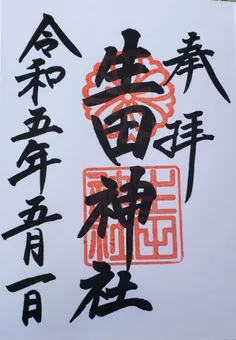 奉拝
生田神社
令和五年五月一日
生田神社